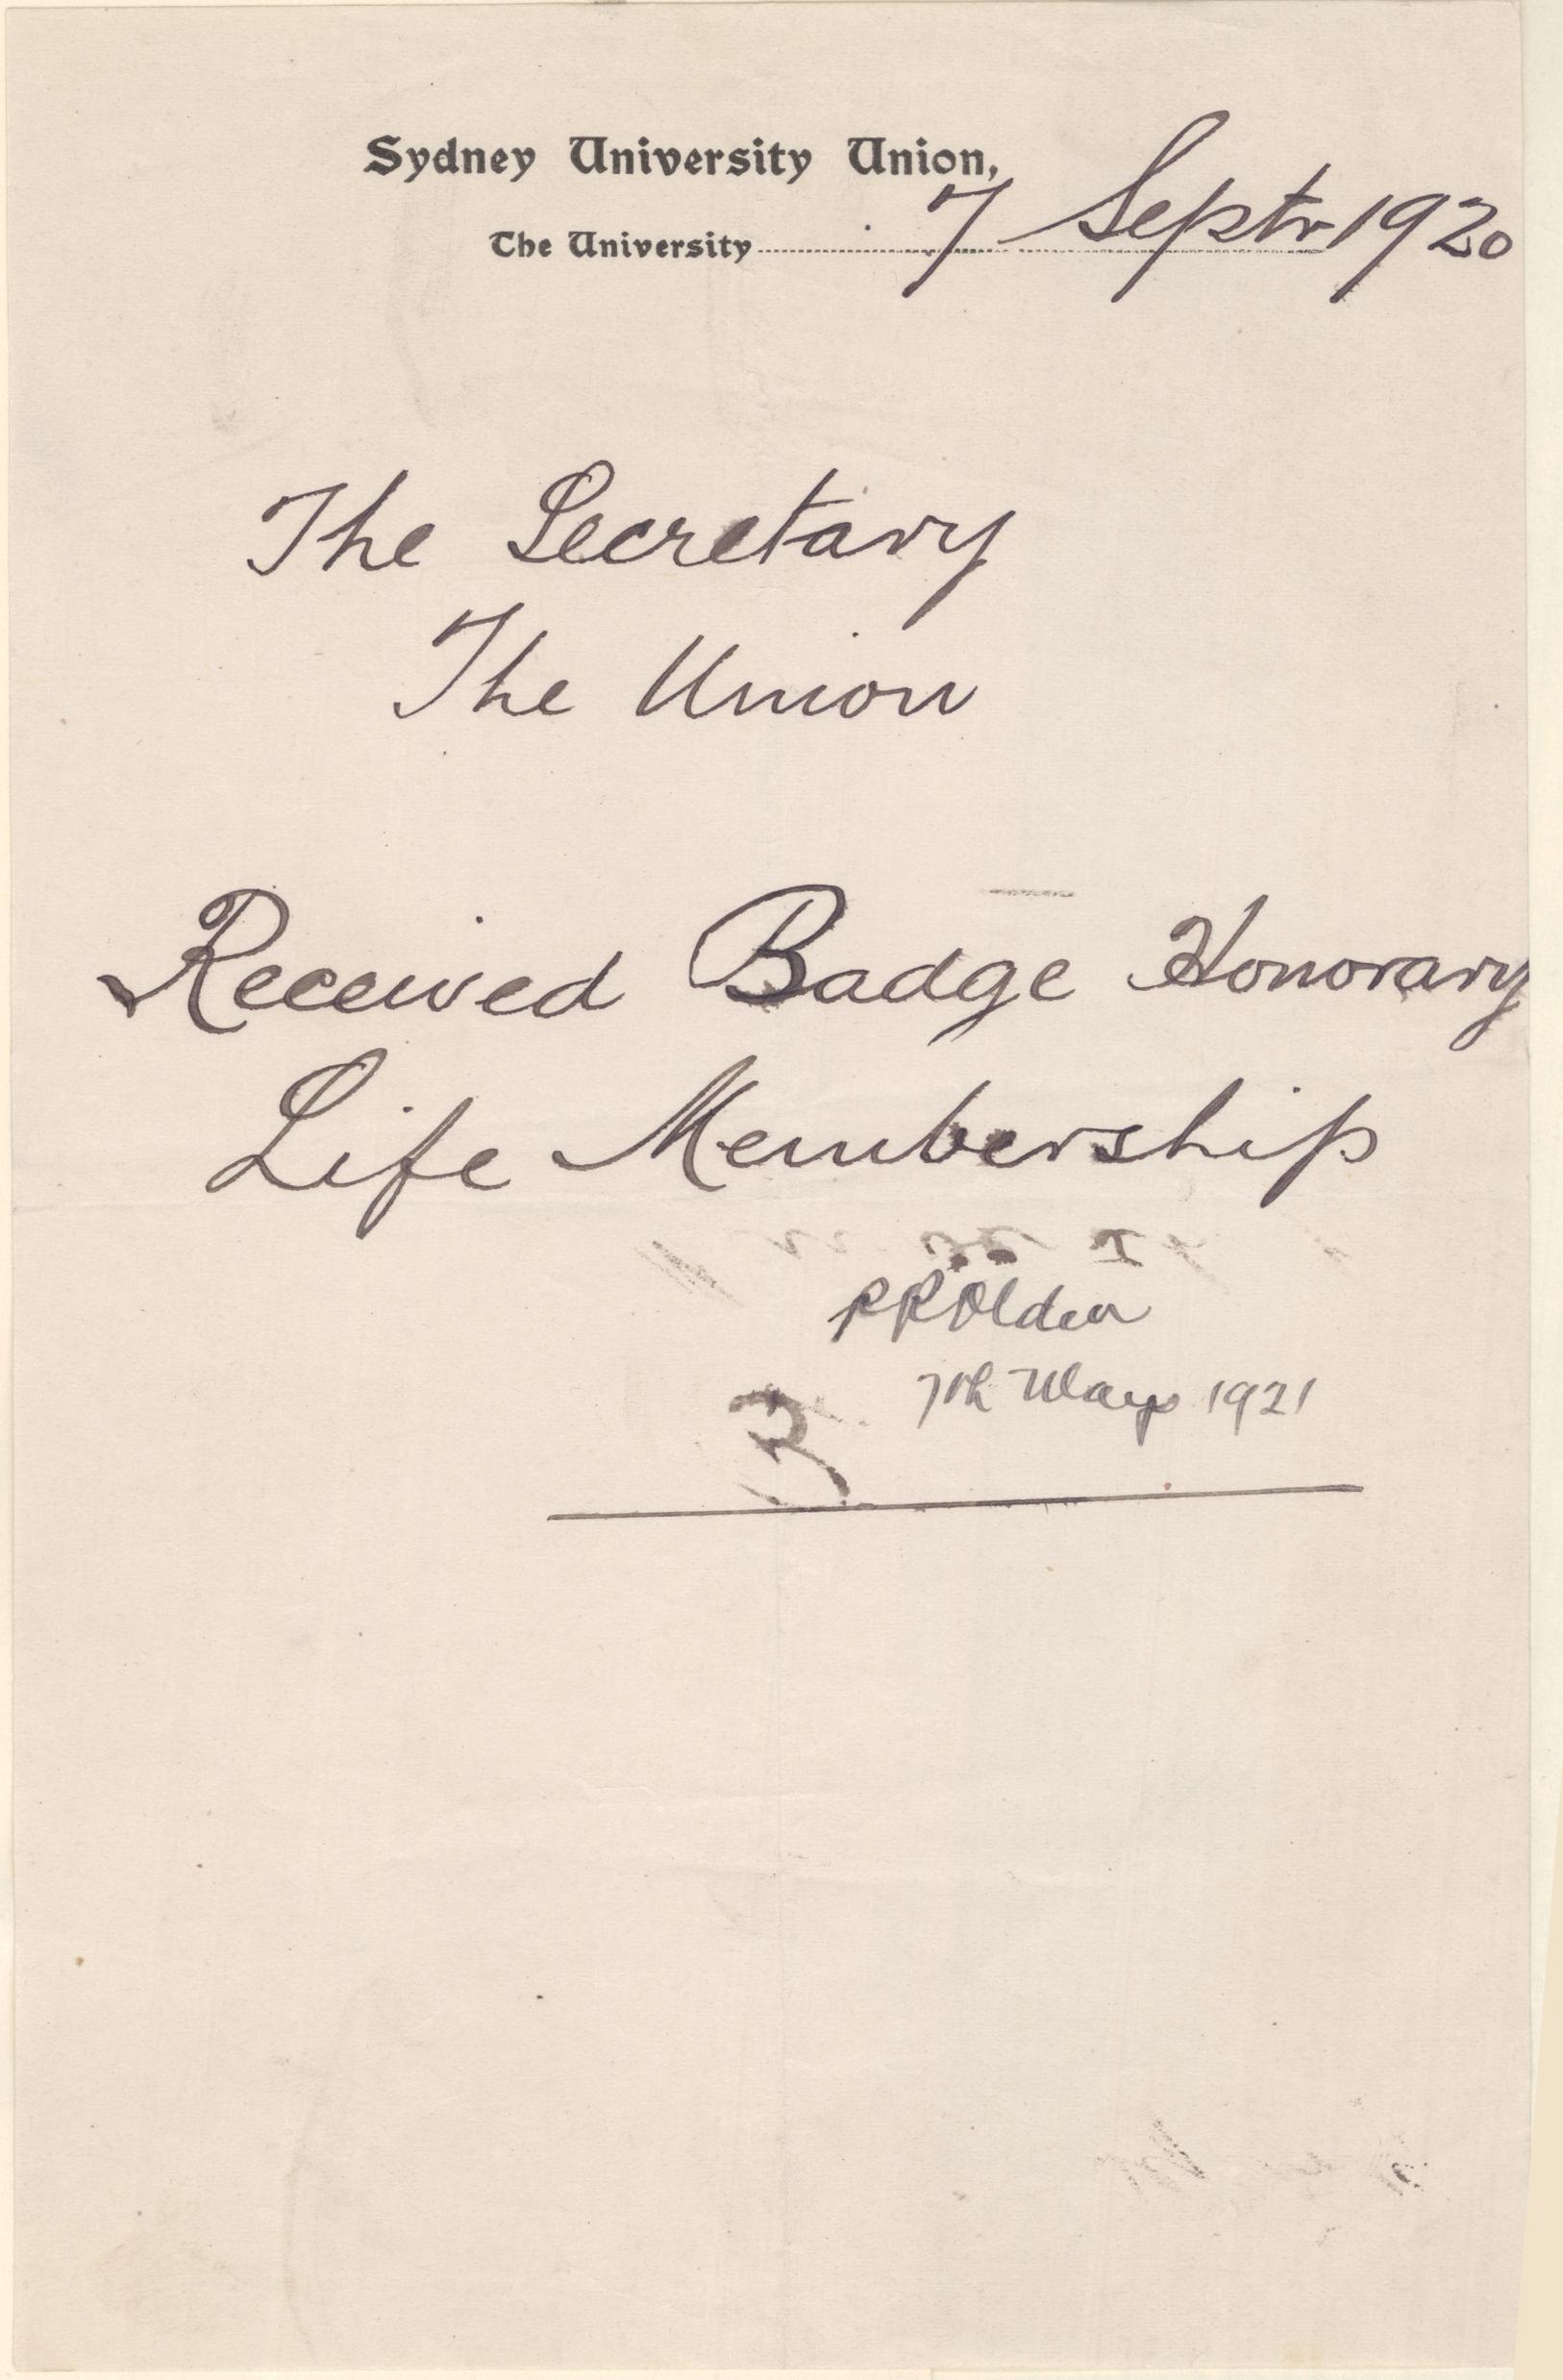 Sydney University Union,
The University 7 Septr 1920
The Secretary
The Union
Received Badge Honorary
Life Membership
7th May 1921